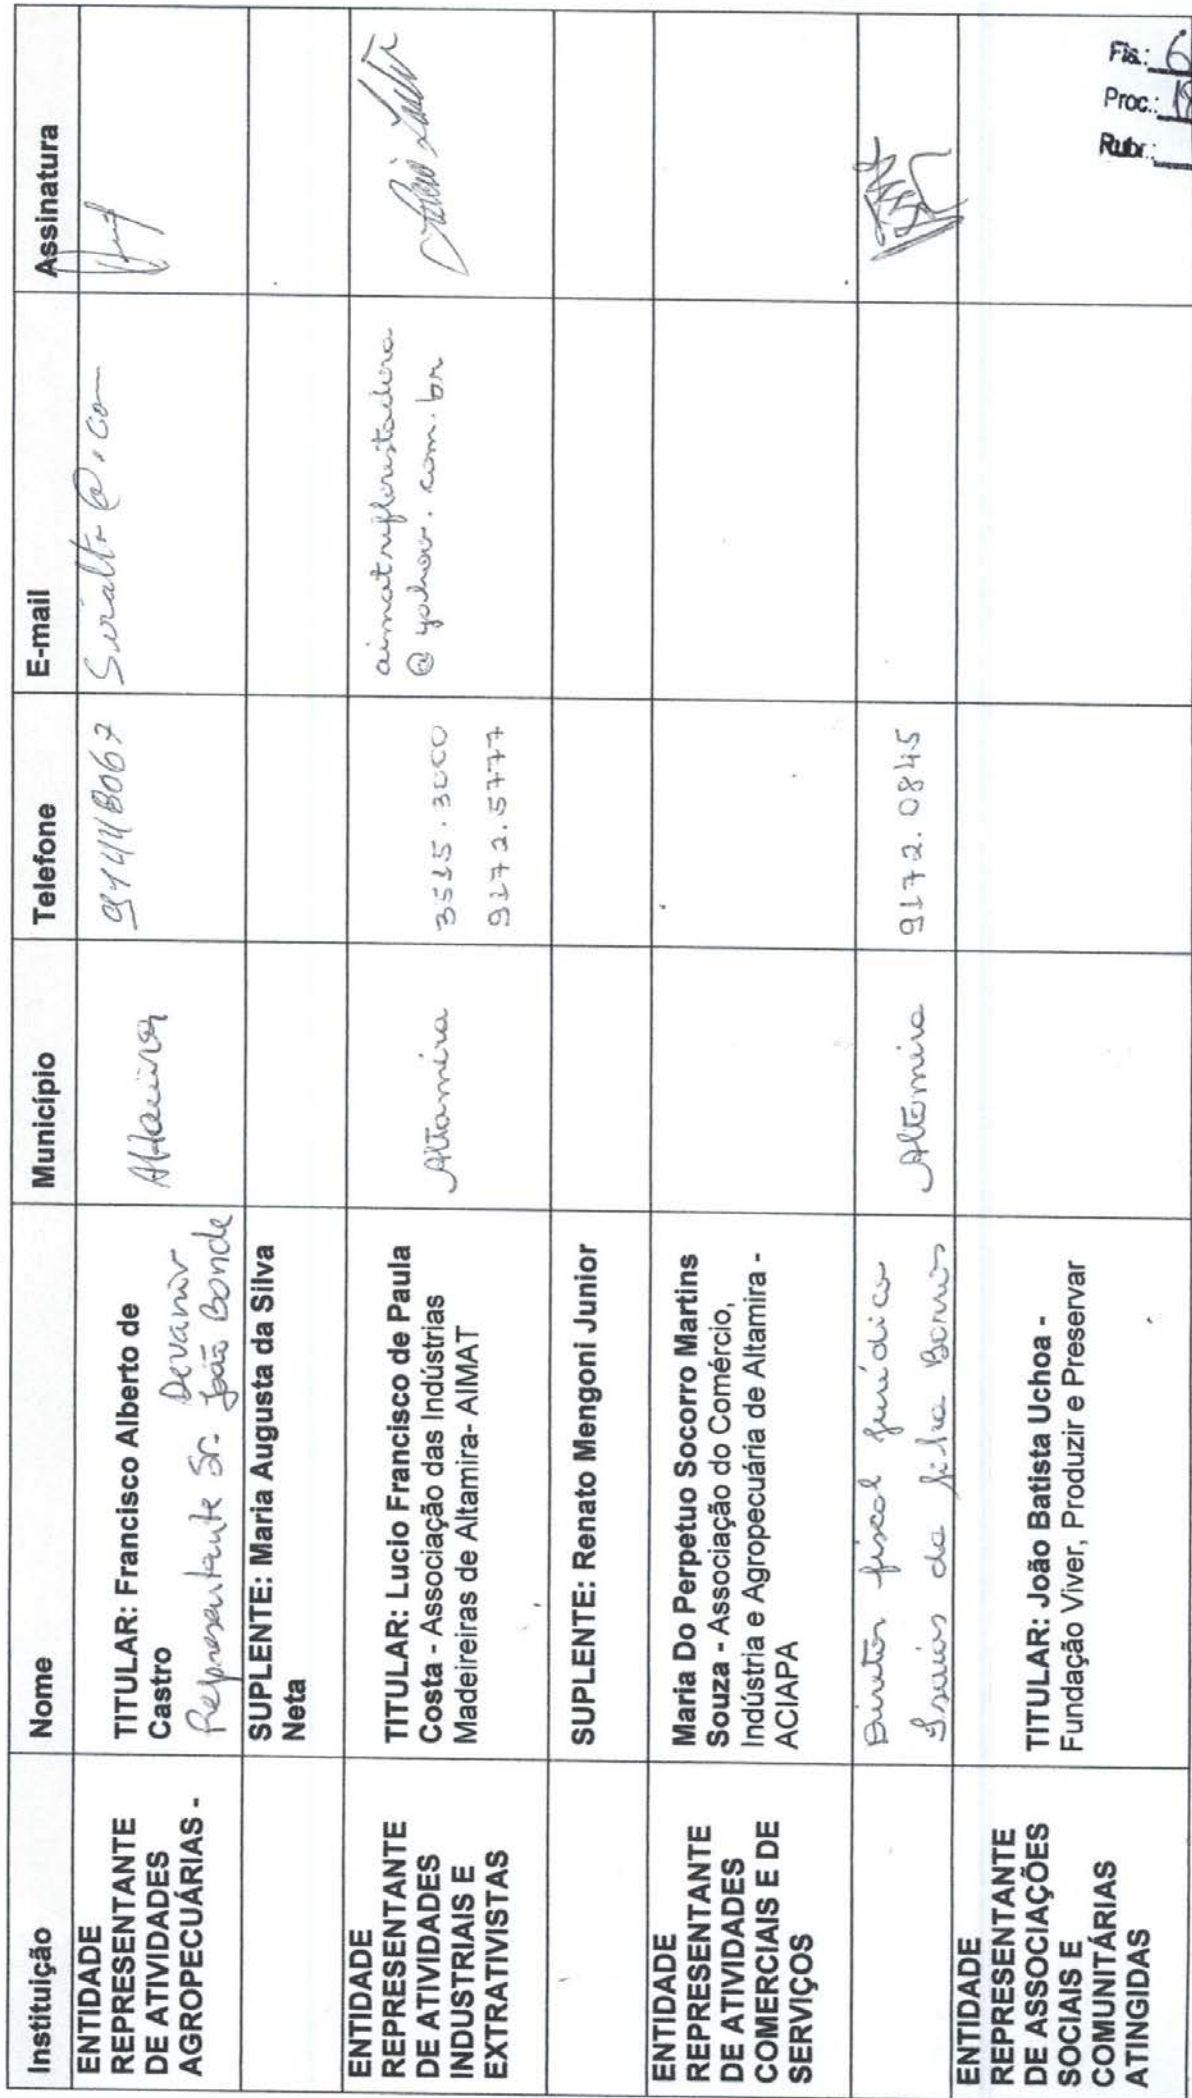 Instituição Nome Município Telefone E-mail Assinatura
ENTIDADE
REPRESENTANTE
DE ATIVIDADES
AGROPECUÁRIAS -
TITULAR: Francisco Alberto de
Castro
Devanir
Representante Sr. João Bonde
Altamira
SUPLENTE: Maria Augusta da Silva
Neta
ENTIDADE
REPRESENTANTE
DE ATIVIDADES
INDUSTRIAIS E
EXTRATIVISTAS
TITULAR: Lucio Francisco de Paula
Costa - Associação das Indústrias
Madeireiras de Altamira- AIMAT
Altamira
3515.3000
9172.5777
aimatreflorestadora
@yahoo.com.br
SUPLENTE: Renato Mengoni Junior
ENTIDADE
REPRESENTANTE
DE ATIVIDADES
COMERCIAIS E DE
SERVIÇOS
Maria Do Perpetuo Socorro Martins
Souza - Associação do Comércio,
Indústria e Agropecuária de Altamira -
ACIAPA
Diretor fiscal jurídico
da Barros
Altamira
9172.0845
ENTIDADE
REPRESENTANTE
DE ASSOCIAÇÕES
SOCIAIS E
COMUNITÁRIAS
ATINGIDAS
TITULAR: João Batista Uchoa -
Fundação Viver, Produzir e Preservar
Fls.: 6
Proc.:
Rubr.: